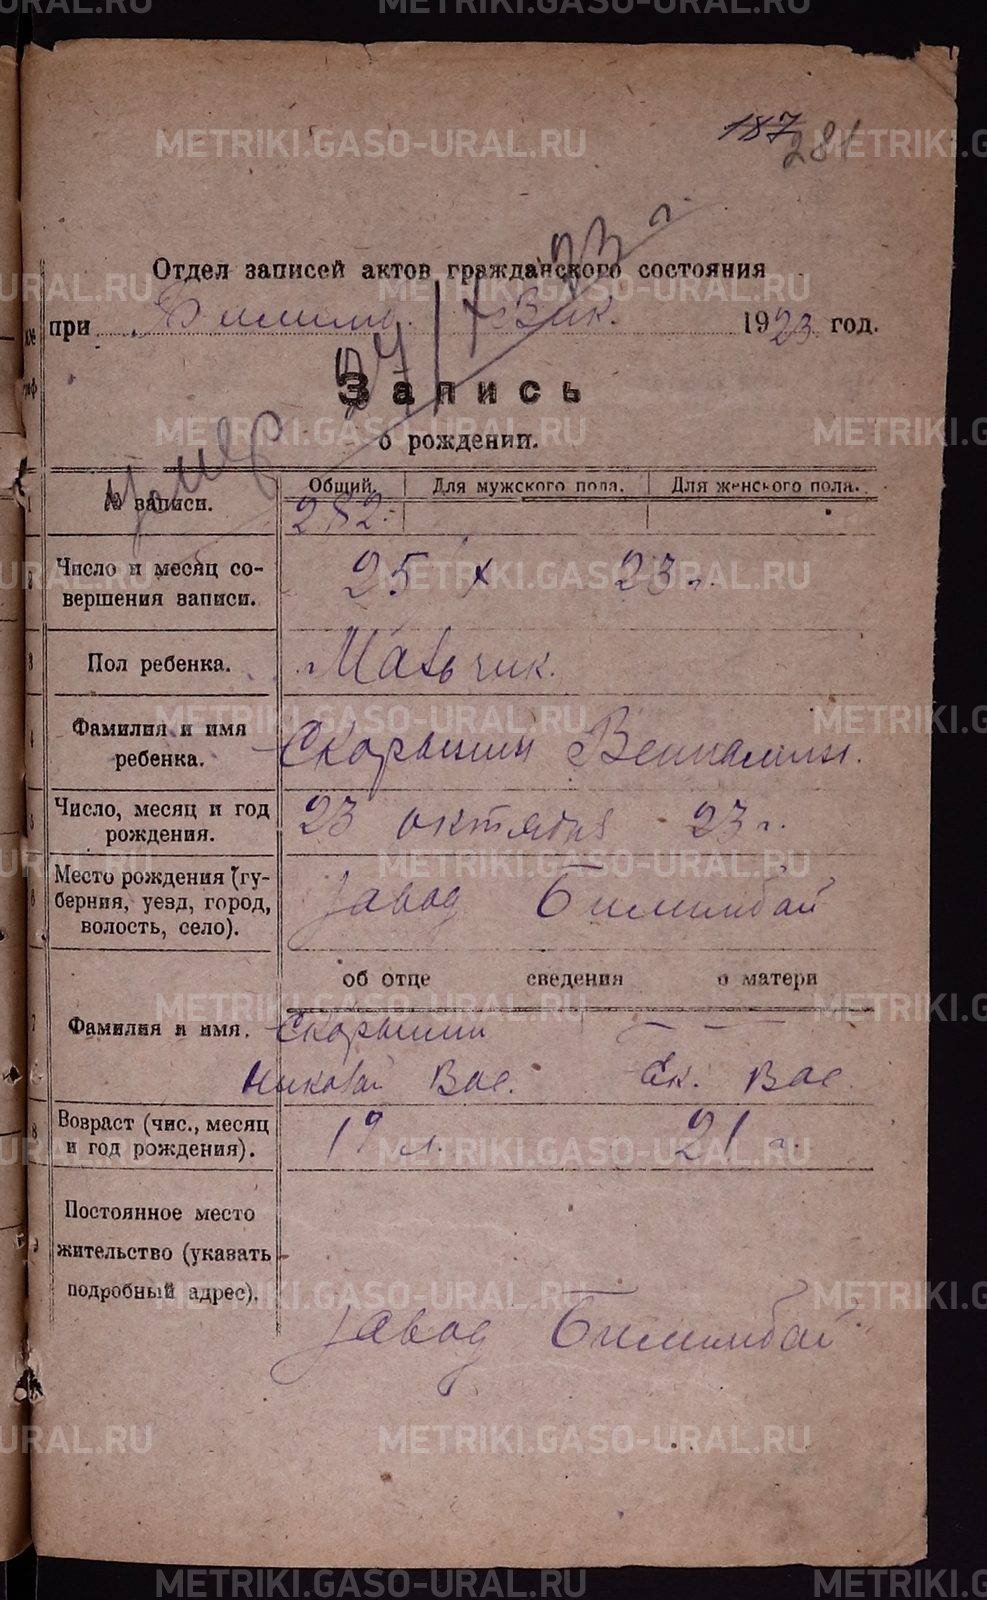 187
281
Отдел записей актов гражданского состояния
при Билимб. Вик. 1923 год.
Запись
о рождении.
Умер
23 г.
№ записи.
Общий. Для мужского пола. Для женского пола.
282
Число и месяц совершения записи.
25 X 23 г.
Пол ребенка.
Мальчик.
Фамилия и имя ребенка.
Скорынин Вениамин.
Число, месяц и год рождения.
23 октября 23 г.
Место рождения (губерния, уезд, город, волость, село).
завод Билимбай
об отце сведения о матери
Фамилия и имя.
Скорынин — — —
Николай Вас. Ек. Вас.
Возраст (чис., месяц и год рождения).
19 л. 21 г.
Постоянное место жительство (указать подробный адрес).
завод Билимбай
METRIKI.GASO-URAL.RU